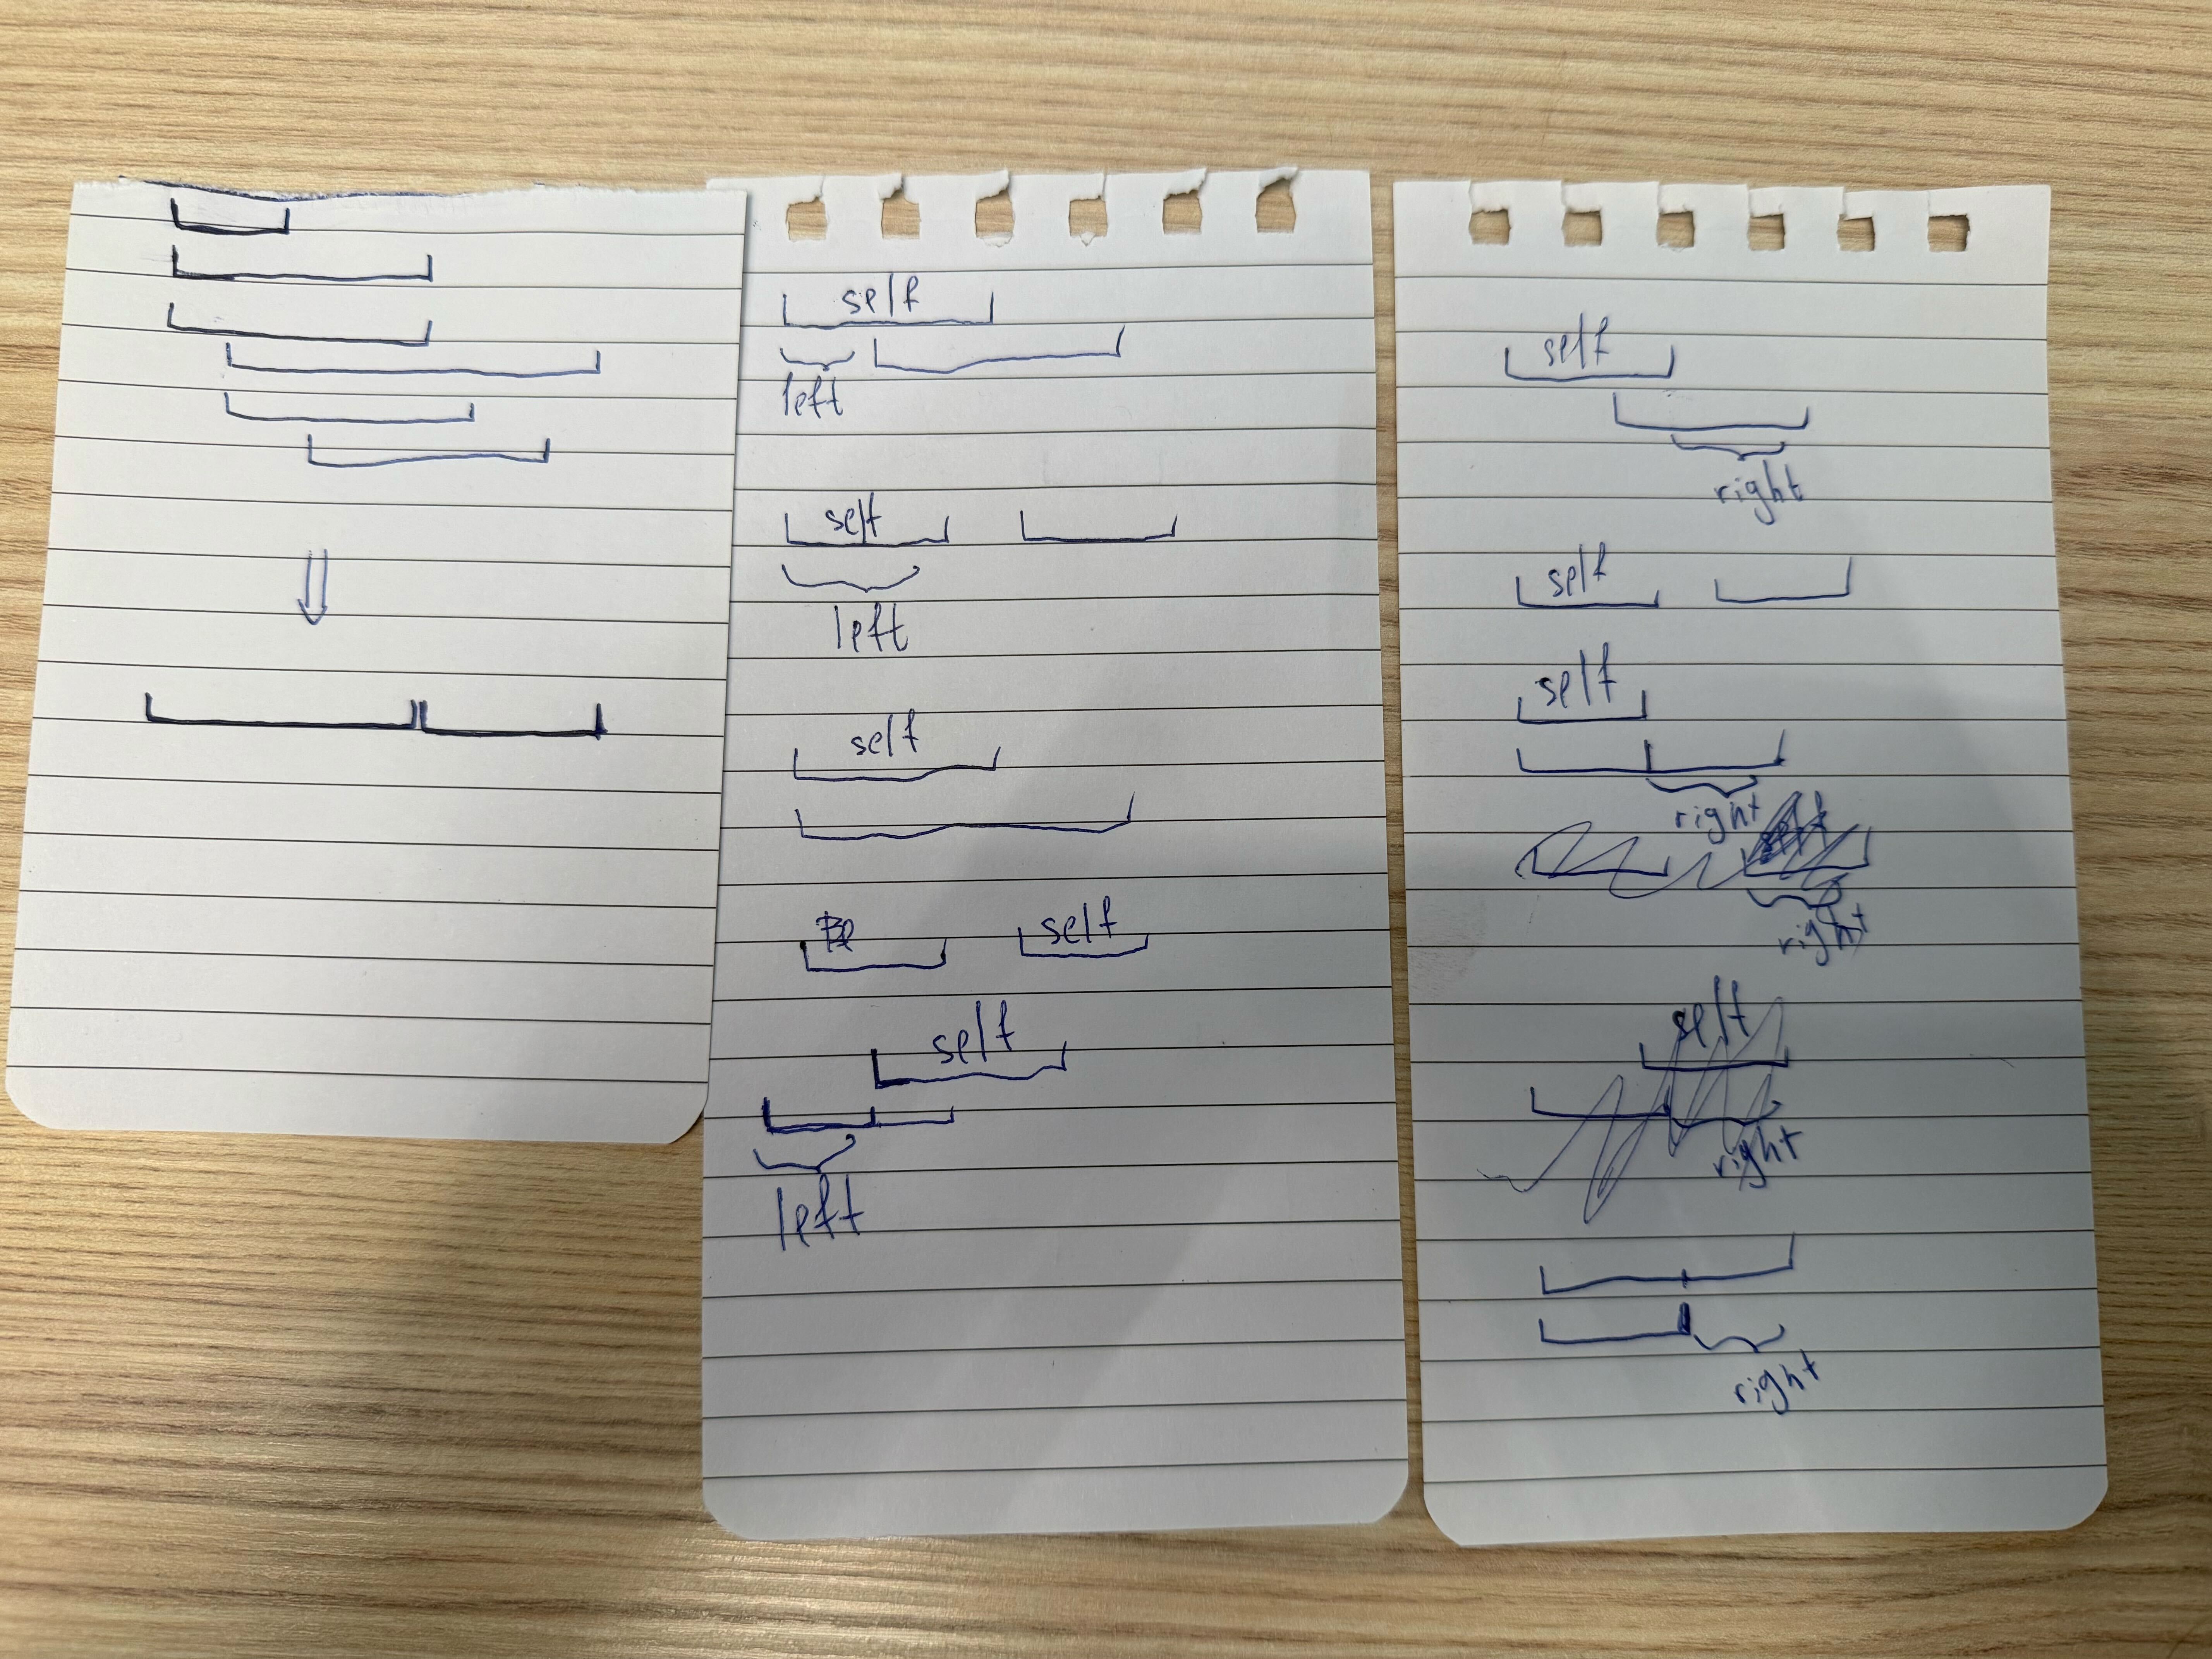 self
left
self
left
self
self
self
left
self
right
self
self
right
right
self
right
right